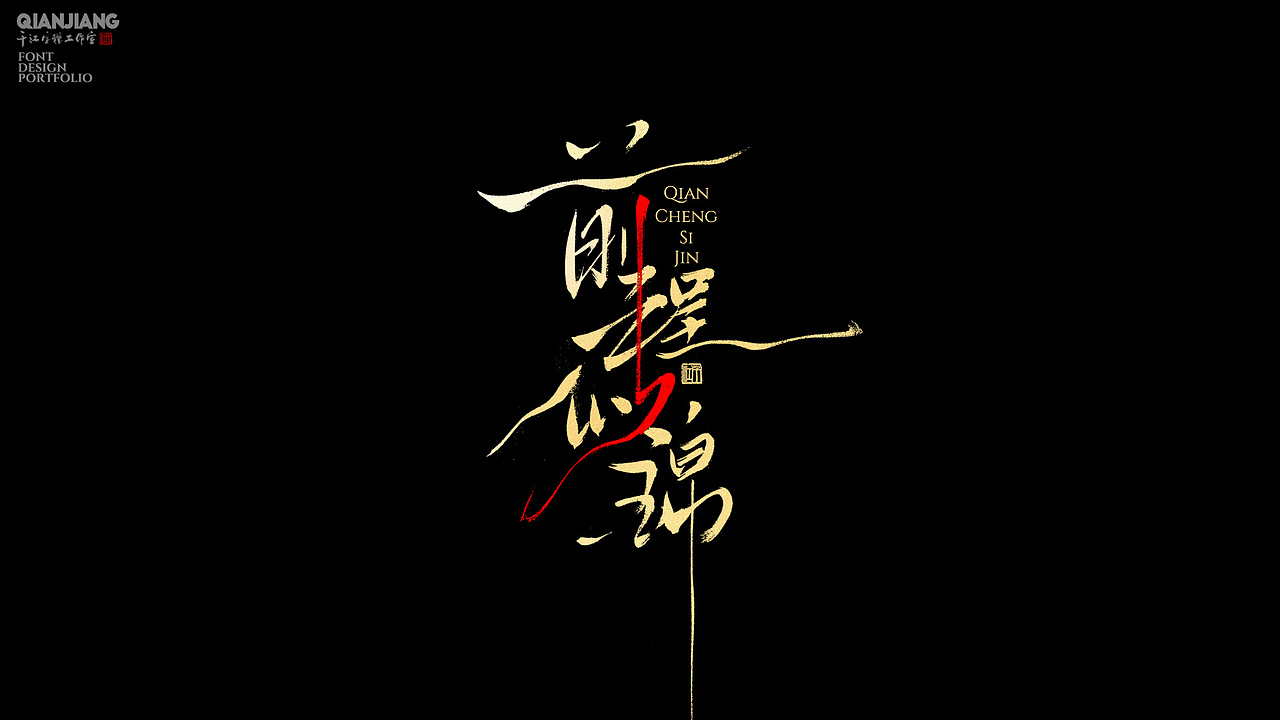 QIANJIANG
千江字體工作室
FONT
DESIGN
PORTFOLIO
前
QIAN
CHENG
SI
JIN
程
似
錦